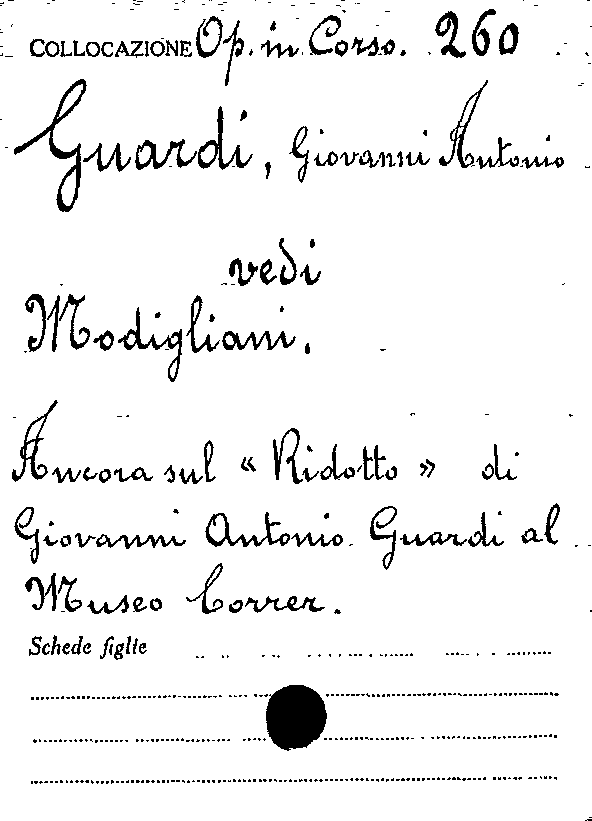 COLLOCAZIONE Op. in Corso. 260
Guardi, Giovanni Antonio
vedi
Modigliani.
Ancora sul « Ridotto » di
Giovanni Antonio Guardi al
Museo Correr.
Schede figlie